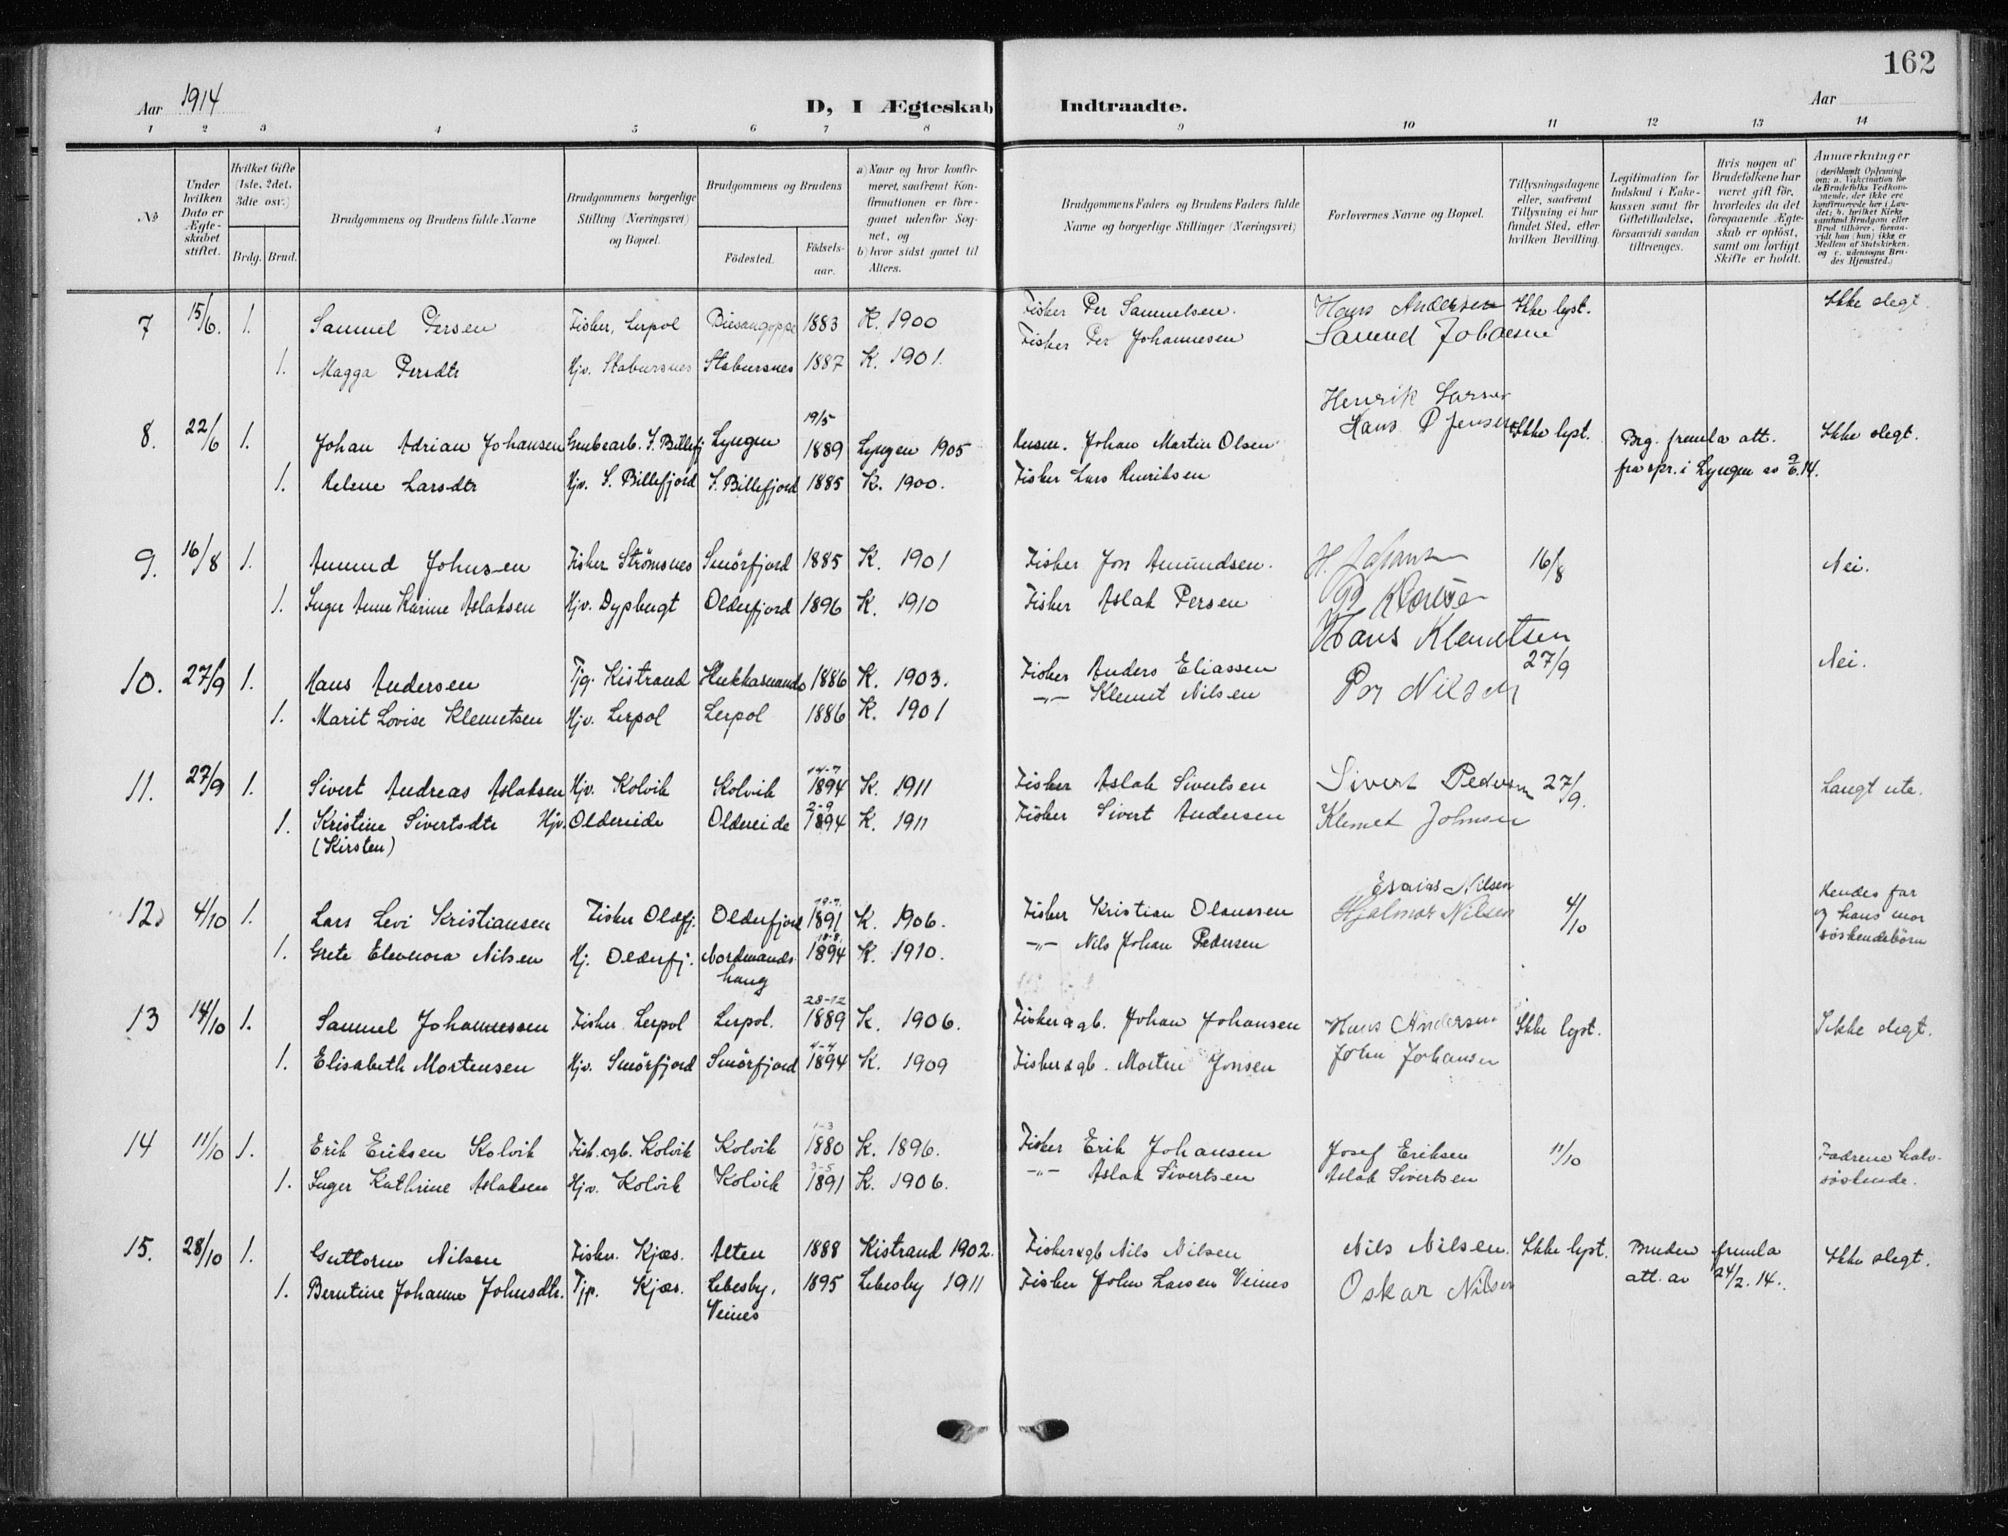 162
Aar 1914
D, I Ægteskab Indtraadte.
Aar
1 2 3 4 5 6 7 8 9 10 11 12 13 14
No
Under hvilken Dato er Ægteskabet stiftet.
Hvilket Gifte (1ste, 2det, 3die osv.)
Brdg. Brud.
Brudgommens og Brudens fulde Navne
Brudgommens borgerlige Stilling (Næringsvei) og Bopæl.
Brudgommens og Brudens
Fødested.
Fødselsaar.
a) Naar og hvor konfirmeret, saafremt Konfirmationen er foregaaet udenfor Sognet, og
b) hvor sidst gaaet til Alters.
Brudgommens Faders og Brudens Faders fulde Navne og borgerlige Stillinger (Næringsvei)
Forlovernes Navne og Bopæl.
Tillysningsdagene eller, saafremt Tillysning ei har fundet Sted, efter hvilken Bevilling.
Legitimation for Indskud i Enkekassen samt for Giftetilladelse, forsaavidt saadan tiltrænges.
Hvis nogen af Brudefolkene har været gift før, hvorledes da det foregaaende Ægteskab er opløst, samt om lovligt Skifte er holdt.
Anmærkninger (deriblandt Oplysning om: a. Vakcination for de Brudefolks Vedkommende, der ikke ere konfirmerede her i Landet; b. hvilket Kirkesamfund Brudgom eller Brud tilhører, forsaavidt han (hun) ikke er Medlem af Statskirken, og c. udensogns Brudes Hjemsted.)
7 15/6. 1. Samuel Persen Fisker, Lerpol Biesangoppe 1883 K. 1900 Fisker Per Samuelsen. Hans Andersen Ikke lyst. Ikke slegt.
1. Magga Persdtr Hjv. Stabursnes Stabursnes 1887 K. 1901. Fisker Per Johannesen Samuel Johnsen
Henrik Larsen
8. 22/6 1. Johan Adrian Johansen Grubearb. S. Billefj Lyngen 19/5 1889 Lyngen 1905 Husm. Johan Martin Olsen Hans P Jensen Ikke lyst. Brg. fremla att. Ikke slegt.
1. Helene Larsdtr Hjv. S. Billefjord S. Billefjord 1885 K. 1900. Fisker Lars Henriksen fra spr. i Lyngen av 9/6.14.
9. 16/8 1. Amund Johnsen Fisker Strömsnes Smörfjord 1885 K. 1901 Fisker Jon Amundsen. H. Johansen 16/8 Nei.
1. Inger Anne Karine Aslaksen Hjv. Dypbugt Olderfjord 1896 K. 1910 Fisker Aslak Persen
Hans Klemetsen
10. 27/9 1. Hans Andersen Tjg. Kistrand 1886 K. 1903. Fisker Anders Eliassen 27/9 Nei.
1. Marit Lovise Klemetsen Hjv. Lerpol Lerpol 1886 K. 1901 -"- Klemet Nilsen Per Nilsen
11. 27/9 1. Sivert Andreas Aslaksen Hjv. Kolvik Kolvik 14-7 1894 K. 1911 Fisker Aslak Sivertsen Sivert Pedersen 27/9. Langt ute.
1. Kristine Sivertsdtr Hjv. Oldereide Oldereide 2-9 1894 K. 1911 Fisker Sivert Andersen Klemet Johnsen
(Kirsten)
Esaias Nilsen
12. 4/10 1. Lars Levi Kristiansen Fisker Oldfj. Olderfjord 1891 K. 1906. Fisker Kristian Olaussen Hjalmar Nilsen 4/10 Hendes far og hans mor söskendebörn
1. Grete Elenora Nilsen Hj. Olderfj. Nordmandshaug 1894 K. 1910. -"- Nils Johan Pedersen
13 14/10 1. Samuel Johannessen Fisker Lerpol Lerpol. 28-12 1889 K. 1906. Fisker & gb. Johan Johansen Hans Andersen Ikke lyst. Ikke slegt.
1. Elisabeth Mortensen Hjv. Smörfjord Smörfjord 4-4 1894 K. 1909 Fisker & gb. Morten Jonsen John Johansen
14 11/10 1. Erik Eriksen Kolvik Fisk. & gb. Kolvik Kolvik 1-3 1880 K. 1896. Fisker Erik Johansen Josef Eriksen 11/10 Fædrene halvsöskende.
1. Inger Kathrine Aslaksen Hjv. Kolvik Kolvik 3-5 1891 K. 1906. -"- Aslak Sivertsen Aslak Sivertsen
15. 28/10 1. Guttorm Nilsen Fisker. Kjæs. Alten 1888 Kistrand 1902. Fisker & gb Nils Nilsen Nils Nilsen. Ikke lyst. Bruden fremla Ikke slegt.
1. Berntine Johanne Johnsdtr. Tjp. Kjæs. Lebesby, Veines 1895 Lebesby 1911 Fisker John Larsen Veines Oskar Nilsen att. av 24/2. 14.